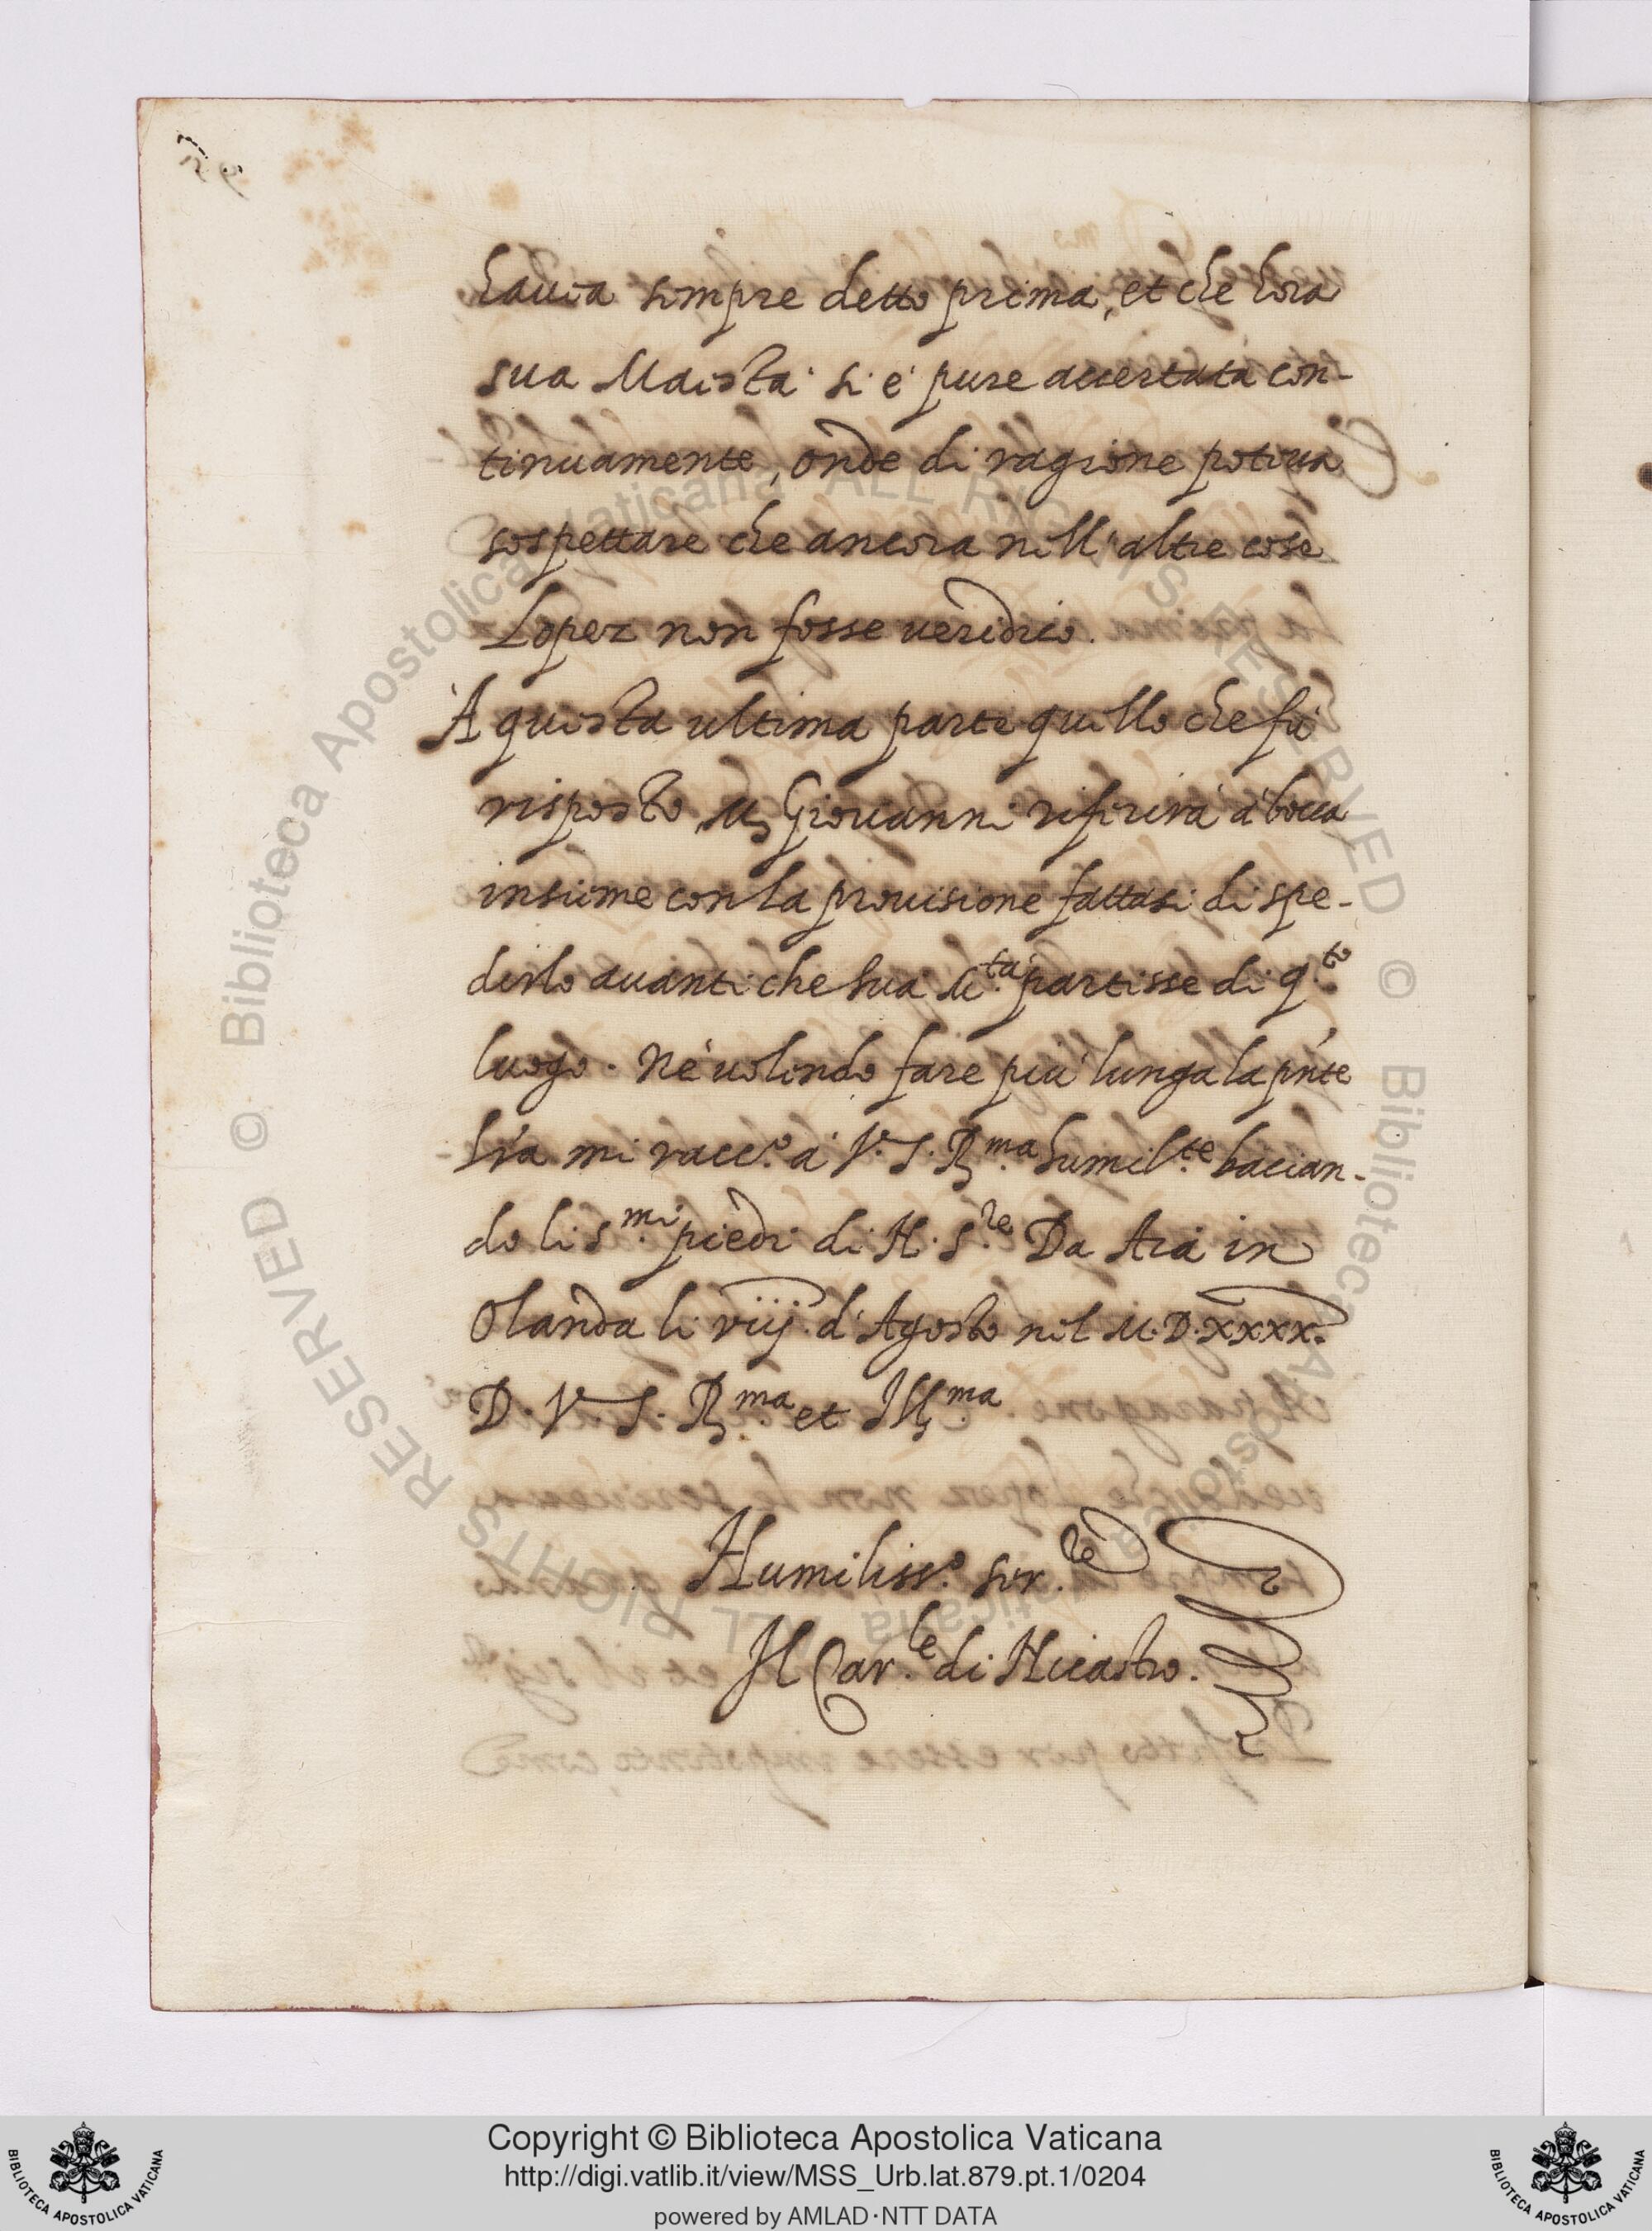 hauea sempre detto prima, et che hora
sua Maestà si è pure accertata con-
tinuamente, onde di ragione poteua
sospettare che ancora nell'altre cose
Lopez non fosse ueridico.
À questa ultima parte quello che fù
risposto, M. Giouanni riferirà à bocca
insieme con la prouisione fattasi di spe-
dirlo auanti che sua M.tà partisse di q.to
luogo. Nè uolendo fare più lunga la pñte
lra mi racc.o à V. S. R.ma humil.te bacian-
do li s.mi piedi di N. S.re Da Aia in
Olanda li viij. d'Agosto nel M.D.xxxx.
D. V. S. R.ma et Ill.ma
Humiliss.o ser.re
Il Car.le di Nicastro.
Copyright © Biblioteca Apostolica Vaticana
http://digi.vatlib.it/view/MSS_Urb.lat.879.pt.1/0204
powered by AMLAD·NTT DATA
BIBLIOTECA APOSTOLICA VATICANA
BIBLIOTECA APOSTOLICA VATICANA
© Biblioteca Apostolica Vaticana ALL RIGHTS RESERVED © Biblioteca Apostolica Vaticana ALL RIGHTS RESERVED